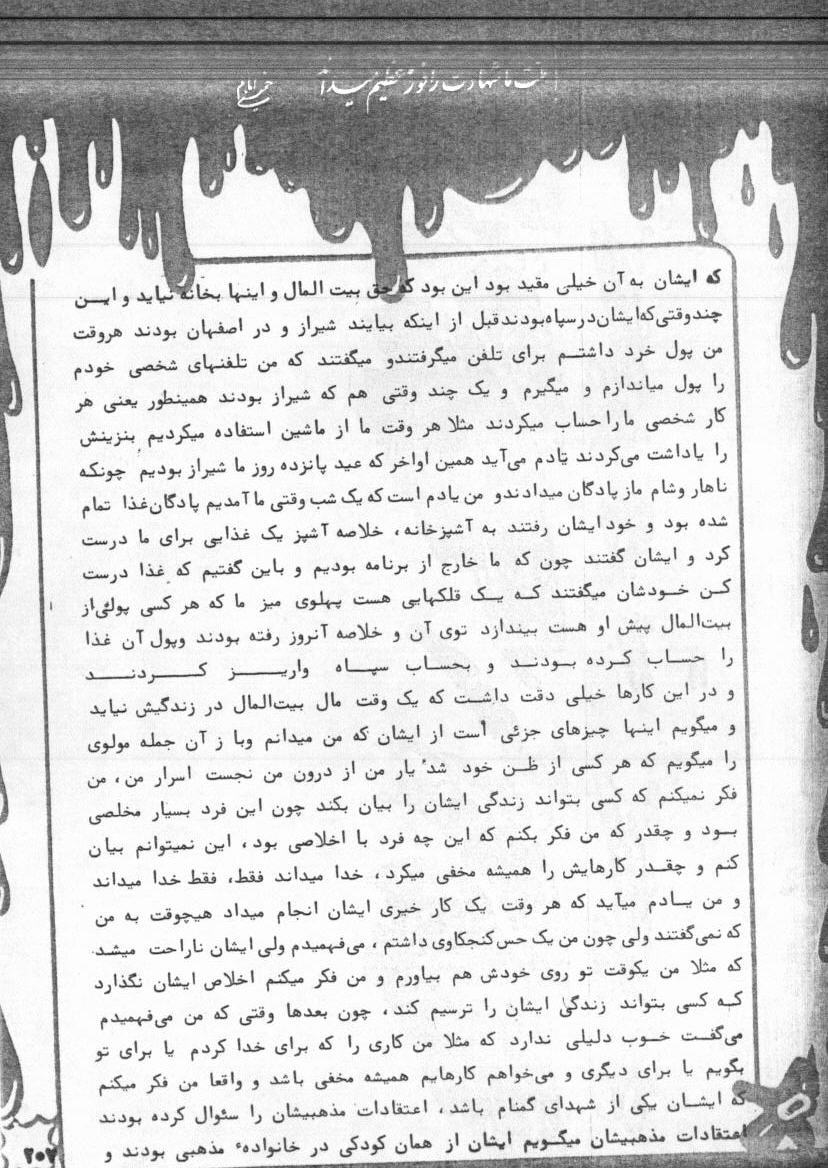 ملت ما شهادت را فوز عظیم میداند امام خمینی
که ایشان به آن خیلی مقید بود این بود که حق بیت المال و اینها بخانه نیاید و ایـــن
چندوقتی‌که‌ایشان‌درسپاه‌بودندقبل از اینکه بیایند شیراز و در اصفهان بودند هروقت
من پول خرد داشتـــم برای تلفن میگرفتندو میگفتند که من تلفنهای شخصی خودم
را پول میاندازم و میگیرم و یک چند وقتی هم که شیراز بودند همینطور یعنی هر
کار شخصی ما را حساب میکردند مثلا هر وقت ما از ماشین استفاده میکردیم بنزینش
را یاداشت می‌کردند یادم می‌آید همین اواخر که عید پانزده روز ما شیراز بودیم چونکه
ناهار وشام ماز پادگان میدادندو من یادم است که یک شب وقتی ما آمدیم پادگان‌غذا تمام
شده بود و خود ایشان رفتند به آشپزخانه، خلاصه آشپز یک غذایی برای ما درست
کرد و ایشان گفتند چون که ما خارج از برنامه بودیم و باین گفتیم که غذا درست
کـن خـودشان میگفتند کـه یـک قلکهایی هست پهلوی میز ما که هر کسی پولی‌از
بیت‌المال پیش او هست بیندازد توی آن و خلاصه آنروز رفته بودند وپول آن غذا
را حساب کـرده بـودنـد و بحساب سپـــاه واریـــــــز کـــــردنـــــد
و در این کارها خیلی دقت داشـت که یک وقت مال بیت‌المال در زندگیش نیاید
و میگویم اینهـا چیزهای جزئی است از ایشان که من میدانم وبا ز آن جمله مولوی
را میگویم که هر کسی از ظـن خود شد یار من از درون من نجست اسرار من، من
فکر نمیکنم که کسی بتواند زندگی ایشان را بیان بکند چون این فرد بسیار مخلصی
بـود و چقدر که من فکر بکنم که این چه فرد با اخلاصی بود، این نمیتوانم بیان
کنم و چقـدر کارهایش را همیشه مخفی میکرد، خدا میداند فقط، فقط خدا میداند
و من یـادم میآید که هر وقت یک کار خیری ایشان انجام میداد هیچوقت به من
که نمی‌گفتند ولی چون من یک حس‌کنجکاوی داشتم، می‌فهمیدم ولی ایشان ناراحت میشد
که مثلا من یکوقت تو روی خودش هم بیاورم و من فکر میکنم اخلاص ایشان نگذارد
کـه کسی بتواند زندگی ایشان را ترسیم کند، چون بعدها وقتی که من می‌فهمیدم
می‌گفـت خـوب دلیلی ندارد که مثلا من کاری را که برای خدا کردم یا برای تو
بگویم یا برای دیگری و می‌خواهم کارهایم همیشه مخفی باشد و واقعا من فکر میکنم
که ایشـان یکی از شهدای گمنام باشد، اعتقادات مذهبیشان را سئوال کرده بودند
اعتقادات مذهبیشان میگـویم ایشان از همان کودکی در خانواده‌ٔ مذهبی بودند و
۲۰۲